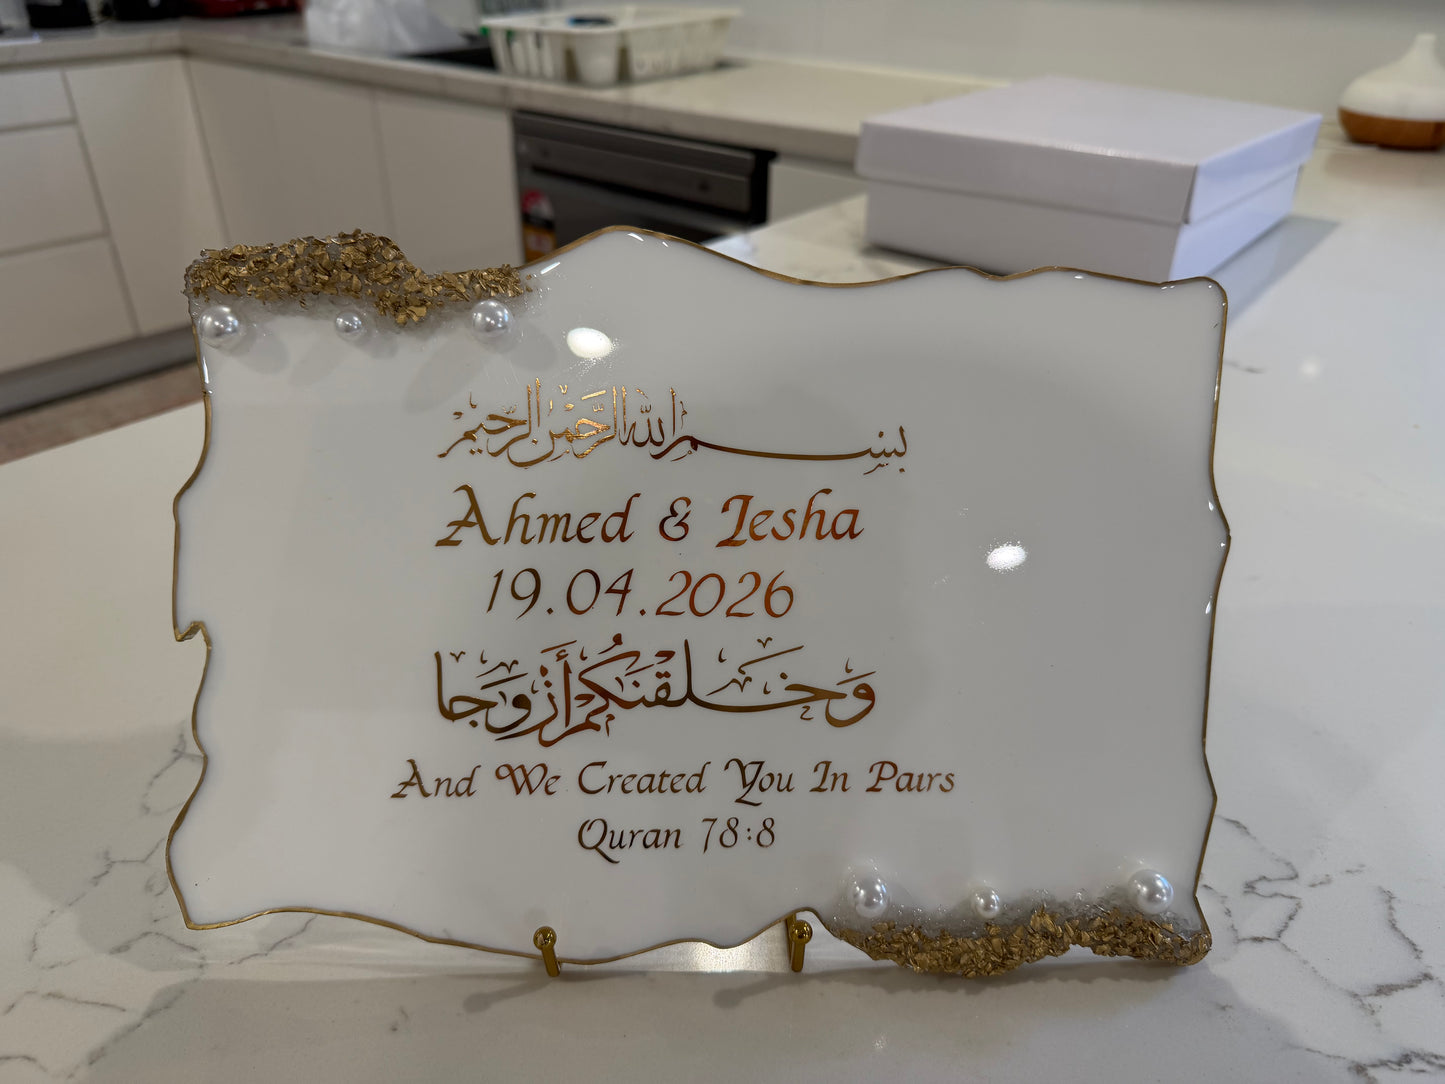 بسم الله الرحمن الرحيم
Ahmed & Iesha
19.04.2026
وَخَلَقْنَكُمْ أَزْوَجًا
And We Created You In Pairs
Quran 78:8